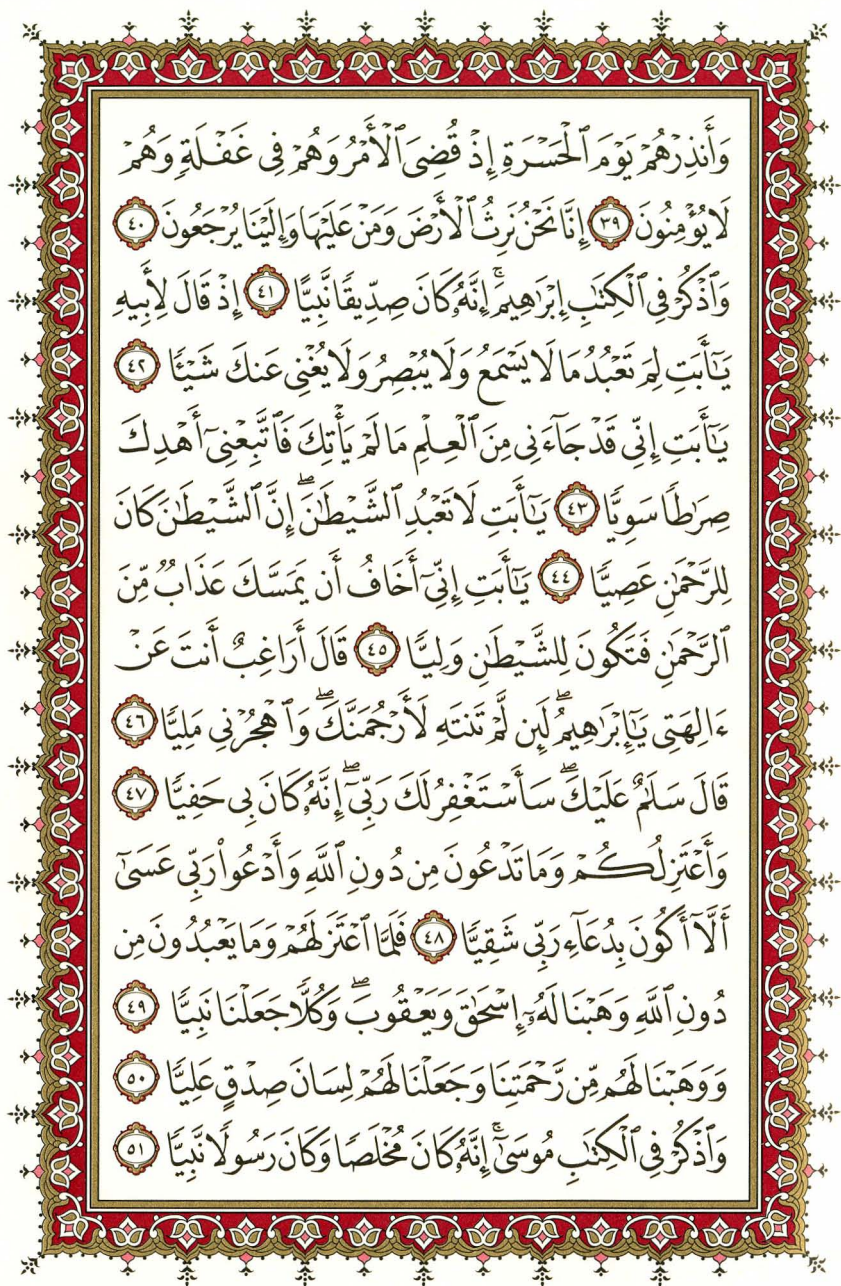 وَأَنذِرْهُمْ يَوْمَ ٱلْحَسْرَةِ إِذْ قُضِىَ ٱلْأَمْرُ وَهُمْ فِى غَفْلَةٍ وَهُمْ
لَا يُؤْمِنُونَ ٣٩ إِنَّا نَحْنُ نَرِثُ ٱلْأَرْضَ وَمَنْ عَلَيْهَا وَإِلَيْنَا يُرْجَعُونَ ٤٠
وَٱذْكُرْ فِى ٱلْكِتَٰبِ إِبْرَٰهِيمَ ۚ إِنَّهُۥ كَانَ صِدِّيقًا نَّبِيًّا ٤١ إِذْ قَالَ لِأَبِيهِ
يَٰٓأَبَتِ لِمَ تَعْبُدُ مَا لَا يَسْمَعُ وَلَا يُبْصِرُ وَلَا يُغْنِى عَنكَ شَيْـًٔا ٤٢
يَٰٓأَبَتِ إِنِّى قَدْ جَآءَنِى مِنَ ٱلْعِلْمِ مَا لَمْ يَأْتِكَ فَٱتَّبِعْنِىٓ أَهْدِكَ
صِرَٰطًا سَوِيًّا ٤٣ يَٰٓأَبَتِ لَا تَعْبُدِ ٱلشَّيْطَٰنَ ۖ إِنَّ ٱلشَّيْطَٰنَ كَانَ
لِلرَّحْمَٰنِ عَصِيًّا ٤٤ يَٰٓأَبَتِ إِنِّىٓ أَخَافُ أَن يَمَسَّكَ عَذَابٌ مِّنَ
ٱلرَّحْمَٰنِ فَتَكُونَ لِلشَّيْطَٰنِ وَلِيًّا ٤٥ قَالَ أَرَاغِبٌ أَنتَ عَنْ
ءَالِهَتِى يَٰٓإِبْرَٰهِيمُ ۖ لَئِن لَّمْ تَنتَهِ لَأَرْجُمَنَّكَ ۖ وَٱهْجُرْنِى مَلِيًّا ٤٦
قَالَ سَلَٰمٌ عَلَيْكَ ۖ سَأَسْتَغْفِرُ لَكَ رَبِّىٓ ۖ إِنَّهُۥ كَانَ بِى حَفِيًّا ٤٧
وَأَعْتَزِلُكُمْ وَمَا تَدْعُونَ مِن دُونِ ٱللَّهِ وَأَدْعُوا۟ رَبِّى عَسَىٰٓ
أَلَّآ أَكُونَ بِدُعَآءِ رَبِّى شَقِيًّا ٤٨ فَلَمَّا ٱعْتَزَلَهُمْ وَمَا يَعْبُدُونَ مِن
دُونِ ٱللَّهِ وَهَبْنَا لَهُۥٓ إِسْحَٰقَ وَيَعْقُوبَ ۖ وَكُلًّا جَعَلْنَا نَبِيًّا ٤٩
وَوَهَبْنَا لَهُم مِّن رَّحْمَتِنَا وَجَعَلْنَا لَهُمْ لِسَانَ صِدْقٍ عَلِيًّا ٥٠
وَٱذْكُرْ فِى ٱلْكِتَٰبِ مُوسَىٰٓ ۚ إِنَّهُۥ كَانَ مُخْلَصًا وَكَانَ رَسُولًا نَّبِيًّا ٥١